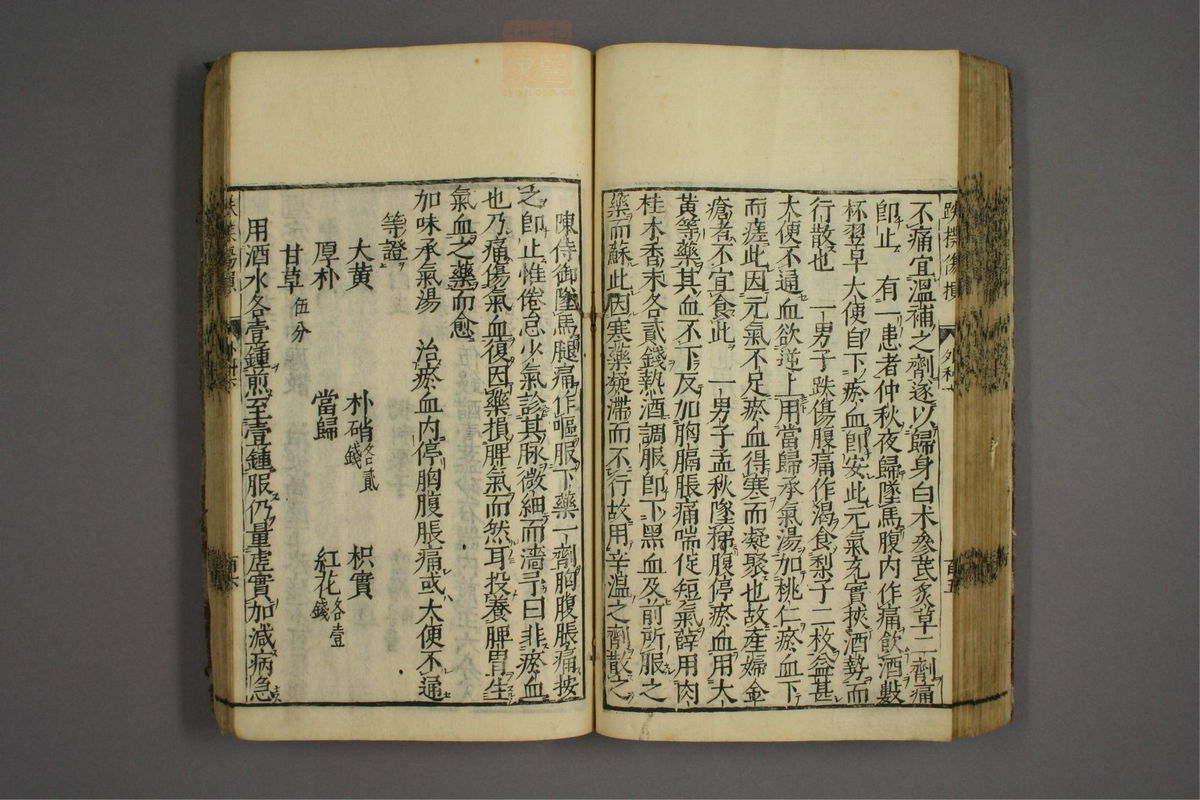 不痛宜溫補之劑遂以歸身白术參芪炙草二劑痛
即止　有一患者仲秋夜歸墜馬腹內作痛飲酒數
杯翌早大便自下瘀血即安此元氣充實挾酒勢而
行散也　一男子跌傷腹痛作渴食梨子二枚益甚
大便不通血欲逆上用當歸承氣湯加桃仁瘀血下
而瘥此因元氣不足瘀血得寒而凝聚也故產婦金
瘡者不宜食此　一男子孟秋墜梯腹停瘀血用大
黃等藥其血不下反加胸膈脹痛喘促短氣薛用肉
桂木香末各貳錢熱酒調服即下黑血及前所服之
藥而蘇此因寒藥凝滯而不行故用辛溫之劑散之
陳侍御墜馬腿痛作嘔服下藥一劑胸腹脹痛按
之即止惟倦怠少氣診其脉微細而濇予曰非瘀血
也乃痛傷氣血復因藥損脾氣而然耳投養脾胃生
氣血之藥而愈
加味承氣湯　治瘀血內停胸腹脹痛或大便不通
等證
大黄　朴硝各貳錢　枳實
厚朴　當歸　紅花各壹錢
甘草伍分
用酒水各壹鍾煎至壹鍾服仍量虛實加減病急
跌撲傷損
跌撲傷損